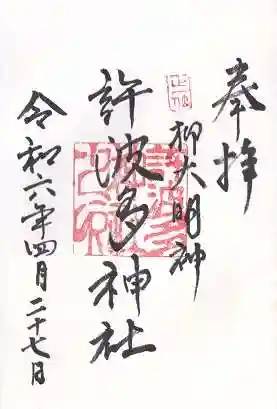 奉拝
正一位
柳大明神
許波多神社
令和六年四月二十七日